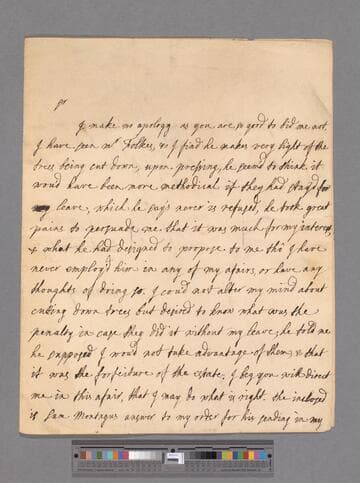 Sr
I make no apology as you are so good to bid me not.
I have seen Mr Folkes, & I find he makes very light of the
trees being cut down, upon pressing, he seem'd to think it
woud have been more methodical if they had stay'd for
my leave, which he says never is refused, he took great
pains to persuade me that it was much for my interest
& what he had designed to propose to me tho' I have
never employ'd him in any of my afairs, or have any
thoughts of doing so. I coud not alter my mind about
cutting down trees but desired to know what was the
penalty in case they did it without my leave; he told me
he supposed I woud not take advantage of them, & that
it was the forfeiture of the estate; I beg you will direct
me in this affair, that I may do what is right. the inclosed
is Sam Montagus answer to my order for his sending in my